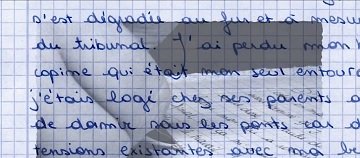 s'est dégradée au fur et à mesu
du tribunal. J'ai perdu mon
copine qui était mon seul entour
j'étais logé chez ses parents a
de dormir sous les ponts car d
tensions existantes avec ma be